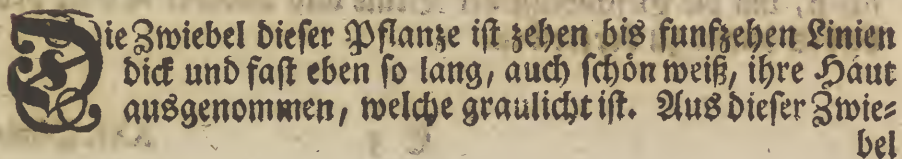 Die Zwiebel dieser Pflanze ist zehen bis funfzehen Linien
dick und fast eben so lang, auch schön weiß, ihre Häut
ausgenommen, welche graulicht ist. Aus dieser Zwie=
bel